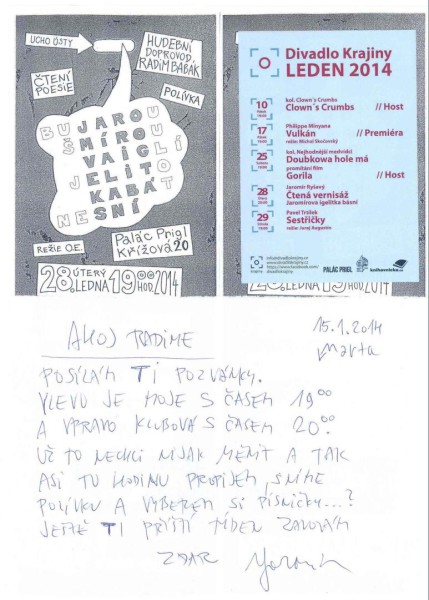 UCHO ÚSTY
HUDEBNÍ
DOPROVOD,
RADIM BABÁK
ČTENÍ
POESIE
POLÍVKA
BUJAROU
ŠMÍROU
VAIGLÍ
JELITO
KABÁT
NESNÍ
REŽIE O.E.
PALÁC PRIGL
KŘÍŽOVÁ 20
28. ÚTERÝ LEDNA 19 00 HOD. 2014
Divadlo Krajiny
LEDEN 2014
10 kol. Clown´s Crumbs
Clown´s Crumbs // Host
17 Philippe Minyana
Vulkán // Premiéra
režie: Michal Skočovský
25 kol. Nejhodnější medvídci
Doubkova hole má
promítání film
Gorila // Host
28 Jaromír Ryšavý
Čtená vernisáž
Jaromírova igelitka básní
29 Pavel Trtílek
Sestřičky
režie: Juraj Augustín
krajiny
PALÁC PRIGL
LEDNA HOD. 2014
15.1.2014
AHOJ RADIME
Marta
POSÍLÁM TI POZVÁNKY.
VLEVU JE MOJE S ČASEM 19 00
A VPRAVO KLUBOVÁ S ČASEM 20 00
UŽ TO NECHCI NIJAK MĚNIT A TAK
ASI TU HODINU PROPIJEM, SNÍME
POLÍVKU A VYBEREM SI PÍSNIČKY...?
JEŠTĚ TI PŘÍŠTÍ TÝDEN ZAVOLÁM
ZDAR